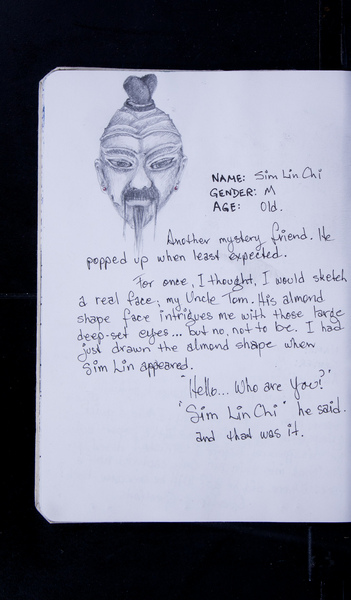 NAME: Sim Lin Chi
GENDER: M
AGE: Old.
Another mystery friend. He
popped up when least expected.
For once, I thought, I would sketch
a real face; my Uncle Tom. His almond
shape face intrigues me with those large
deep-set eyes... but no, not to be. I had
just drawn the almond shape when
Sim Lin appeared.
"Hello... Who are you?"
"Sim Lin Chi" he said.
and that was it.